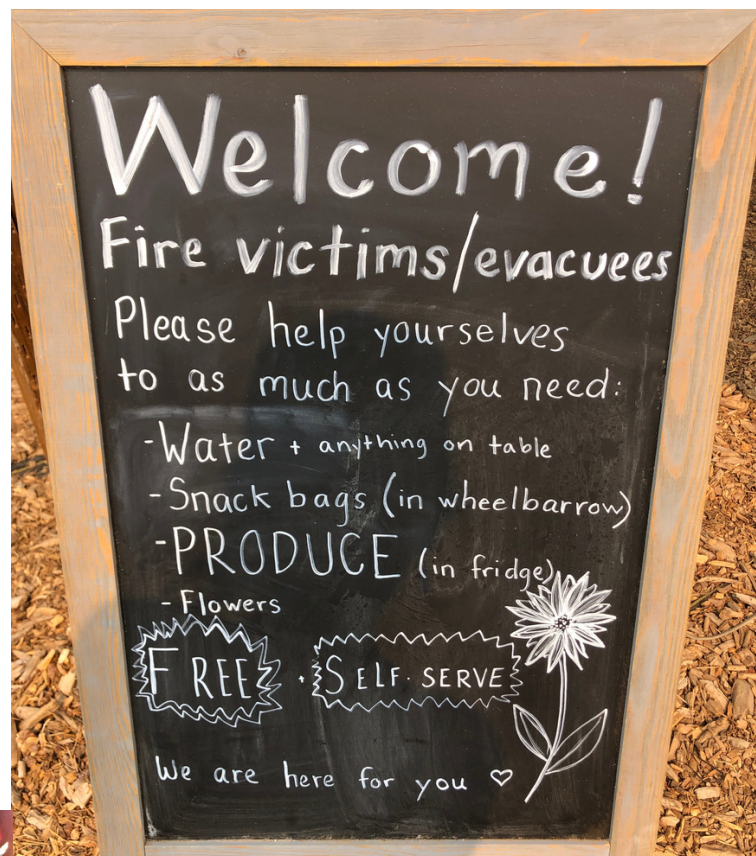 Welcome!
Fire victims/evacuees
Please help yourselves
to as much as you need:
-Water + anything on table
-Snack bags (in wheelbarrow)
-PRODUCE (in fridge)
-Flowers
FREE + SELF-SERVE
We are here for you ♡